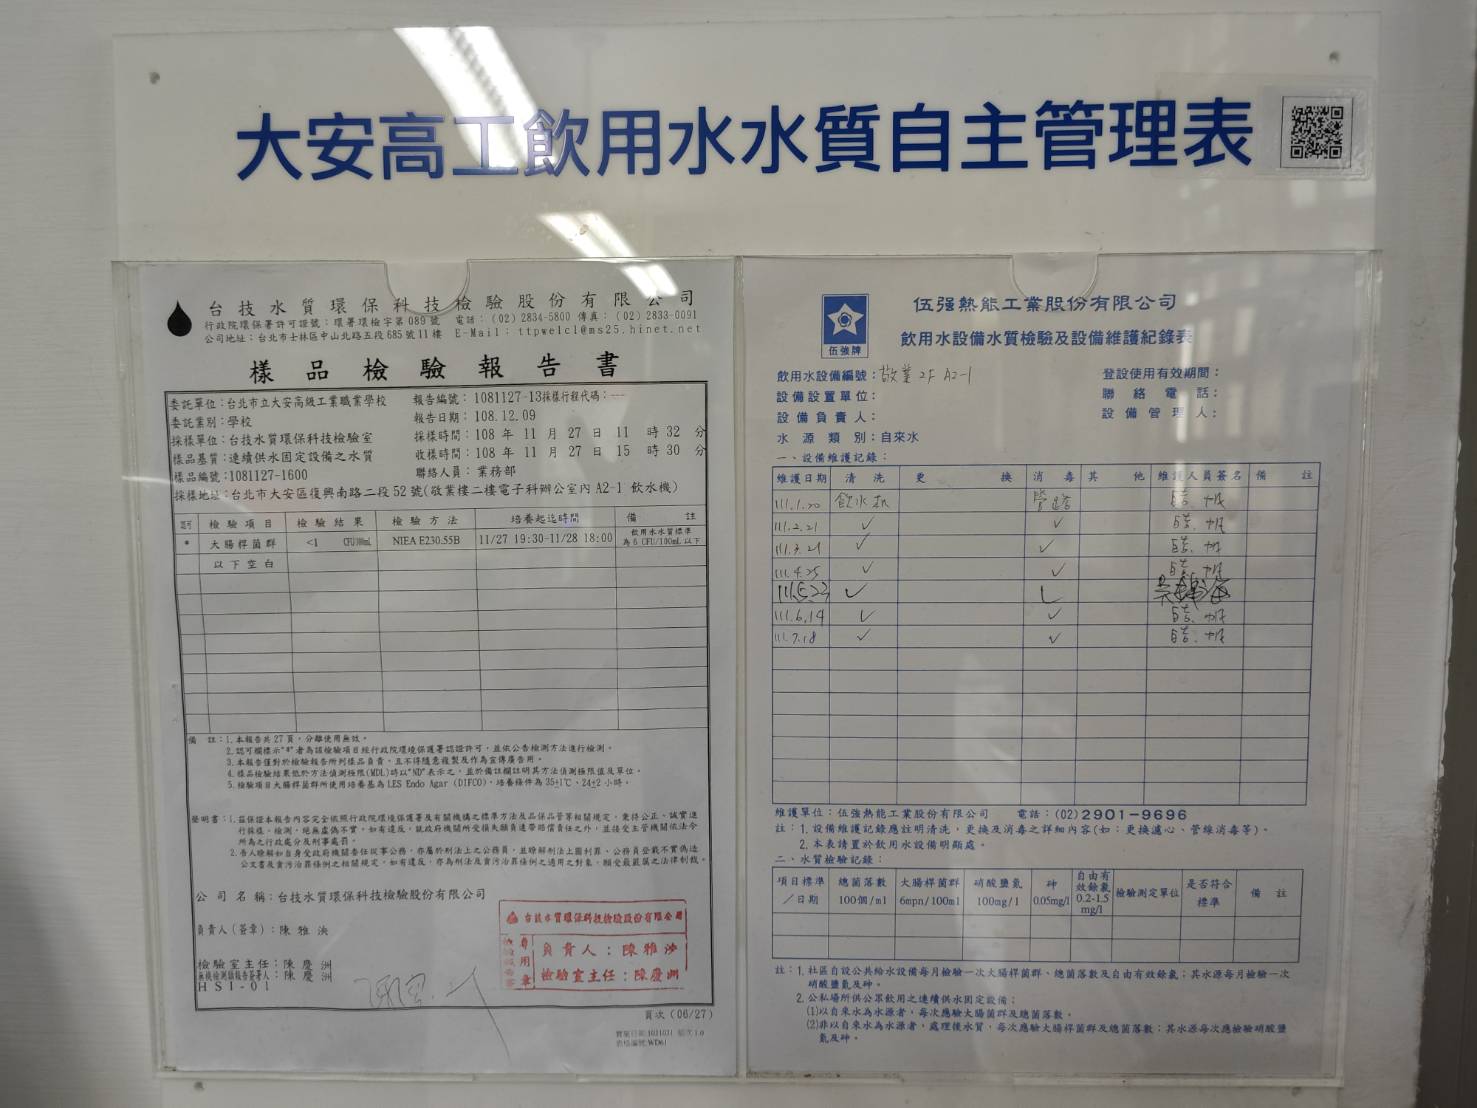 大安高工飲用水水質自主管理表
台技水質環保科技檢驗股份有限公司
行政院環保署許可證號：環署環檢字第089號 電話：(02)2834-5800 傳真：(02)2833-0091
公司地址：台北市士林區中山北路五段685號11樓 E-Mail：ttpwelcl@ms25.hinet.net
樣品檢驗報告書
委託單位：台北市立大安高級工業職業學校 報告編號：1081127-13採樣行程代碼：---
委託業別：學校 報告日期：108.12.09
採樣單位：台技水質環保科技檢驗室 採樣時間：108 年 11 月 27 日 11 時 32 分
樣品基質：連續供水固定設備之水質 收樣時間：108 年 11 月 27 日 15 時 30 分
樣品編號：1081127-1600 聯絡人員：業務部
採樣地址：台北市大安區復興南路二段52號(敬業樓二樓電子科辦公室內A2-1 飲水機)
認可 檢驗項目 檢驗結果 檢驗方法 培養起迄時間 備註
* 大腸桿菌群 <1 CFU/100mL NIEA E230.55B 11/27 19:30-11/28 18:00 飲用水水質標準為6 CFU/100mL以下
以下空白
備 註：1.本報告共27頁，分離使用無效。
2.認可欄標示"*"者為該檢驗項目經行政院環境保護署認證許可，並依公告檢測方法進行檢測。
3.本報告僅對於檢驗報告所列樣品負責，且不得隨意複製及作為宣傳廣告用。
4.樣品檢驗結果低於方法偵測極限(MDL)時以"ND"表示之，並於備註欄註明其方法偵測極限值及單位。
5.檢驗項目大腸桿菌群所使用培養基為LES Endo Agar (DIFCO)，培養條件為35±1℃、24±2小時。
聲明書：1.茲保證本報告內容完全依照行政院環境保護署及有關機構之標準方法及品保品管等相關規定，秉持公正、誠實進
行採樣、檢測，絕無虛偽不實，如有違反，就政府機關所受損失願負連帶賠償責任之外，並接受主管機關依法令
所為之行政處分及刑事處罰。
2.吾人瞭解如自身受政府機關委任從事公務，亦屬於刑法上之公務員，並瞭解刑法上圖利罪、公務員登載不實偽造
公文書及貪污治罪條例之相關規定，如有違反，亦為刑法及貪污治罪條例之適用之對象，願受最嚴厲之法律制裁。
公司名稱：台技水質環保科技檢驗股份有限公司
負責人(簽章)：陳雅泱
檢驗室主任：陳慶洲
無機檢測類報告簽署人：陳慶洲
HSI-01
台技水質環保科技檢驗股份有限公司
檢驗報告專用章
負責人：陳雅泱
檢驗室主任：陳慶洲
頁次(06/27)
實施日期:1021021 版次:1.0
表格編號:WD61
伍強牌
伍强熱能工業股份有限公司
飲用水設備水質檢驗及設備維護紀錄表
飲用水設備編號：敬業 2F A2-1 登設使用有效期間：
設備設置單位： 聯絡電話：
設備負責人： 設備管理人：
水源類別：自來水
一、設備維護記錄：
維護日期 清洗 更換 消毒 其他 維護人員簽名 備註
111.1.20 飲水机 管路
111.2.21 ✓ ✓
111.3.21 ✓ ✓
111.4.25 ✓ ✓
111.5.23 ✓ ✓
111.6.14 ✓ ✓
111.7.18 ✓ ✓
維護單位：伍強熱能工業股份有限公司 電話：(02)2901-9696
註：1.設備維護記錄應註明清洗，更換及消毒之詳細內容(如：更換濾心、管線消毒等)。
2.本表請置於飲用水設備明顯處。
二、水質檢驗記錄：
項目標準／日期 總菌落數 100個/ml 大腸桿菌群 6mpn/100ml 硝酸鹽氮 100mg/l 砷 0.05mg/l 自由有效餘氯 0.2-1.5 mg/l 檢驗測定單位 是否符合標準 備註
註：1.社區自設公共給水設備每月檢驗一次大腸桿菌群、總菌落數及自由有效餘氯；其水源每月檢驗一次
硝酸鹽氮及砷。
2.公私場所供公眾飲用之連續供水固定設備：
(1)以自來水為水源者，每次應驗大腸菌群及總菌落數。
(2)非以自來水為水源者，處理後水質，每次應驗大腸桿菌群及總菌落數；其水源每次應檢驗硝酸鹽
氮及砷。